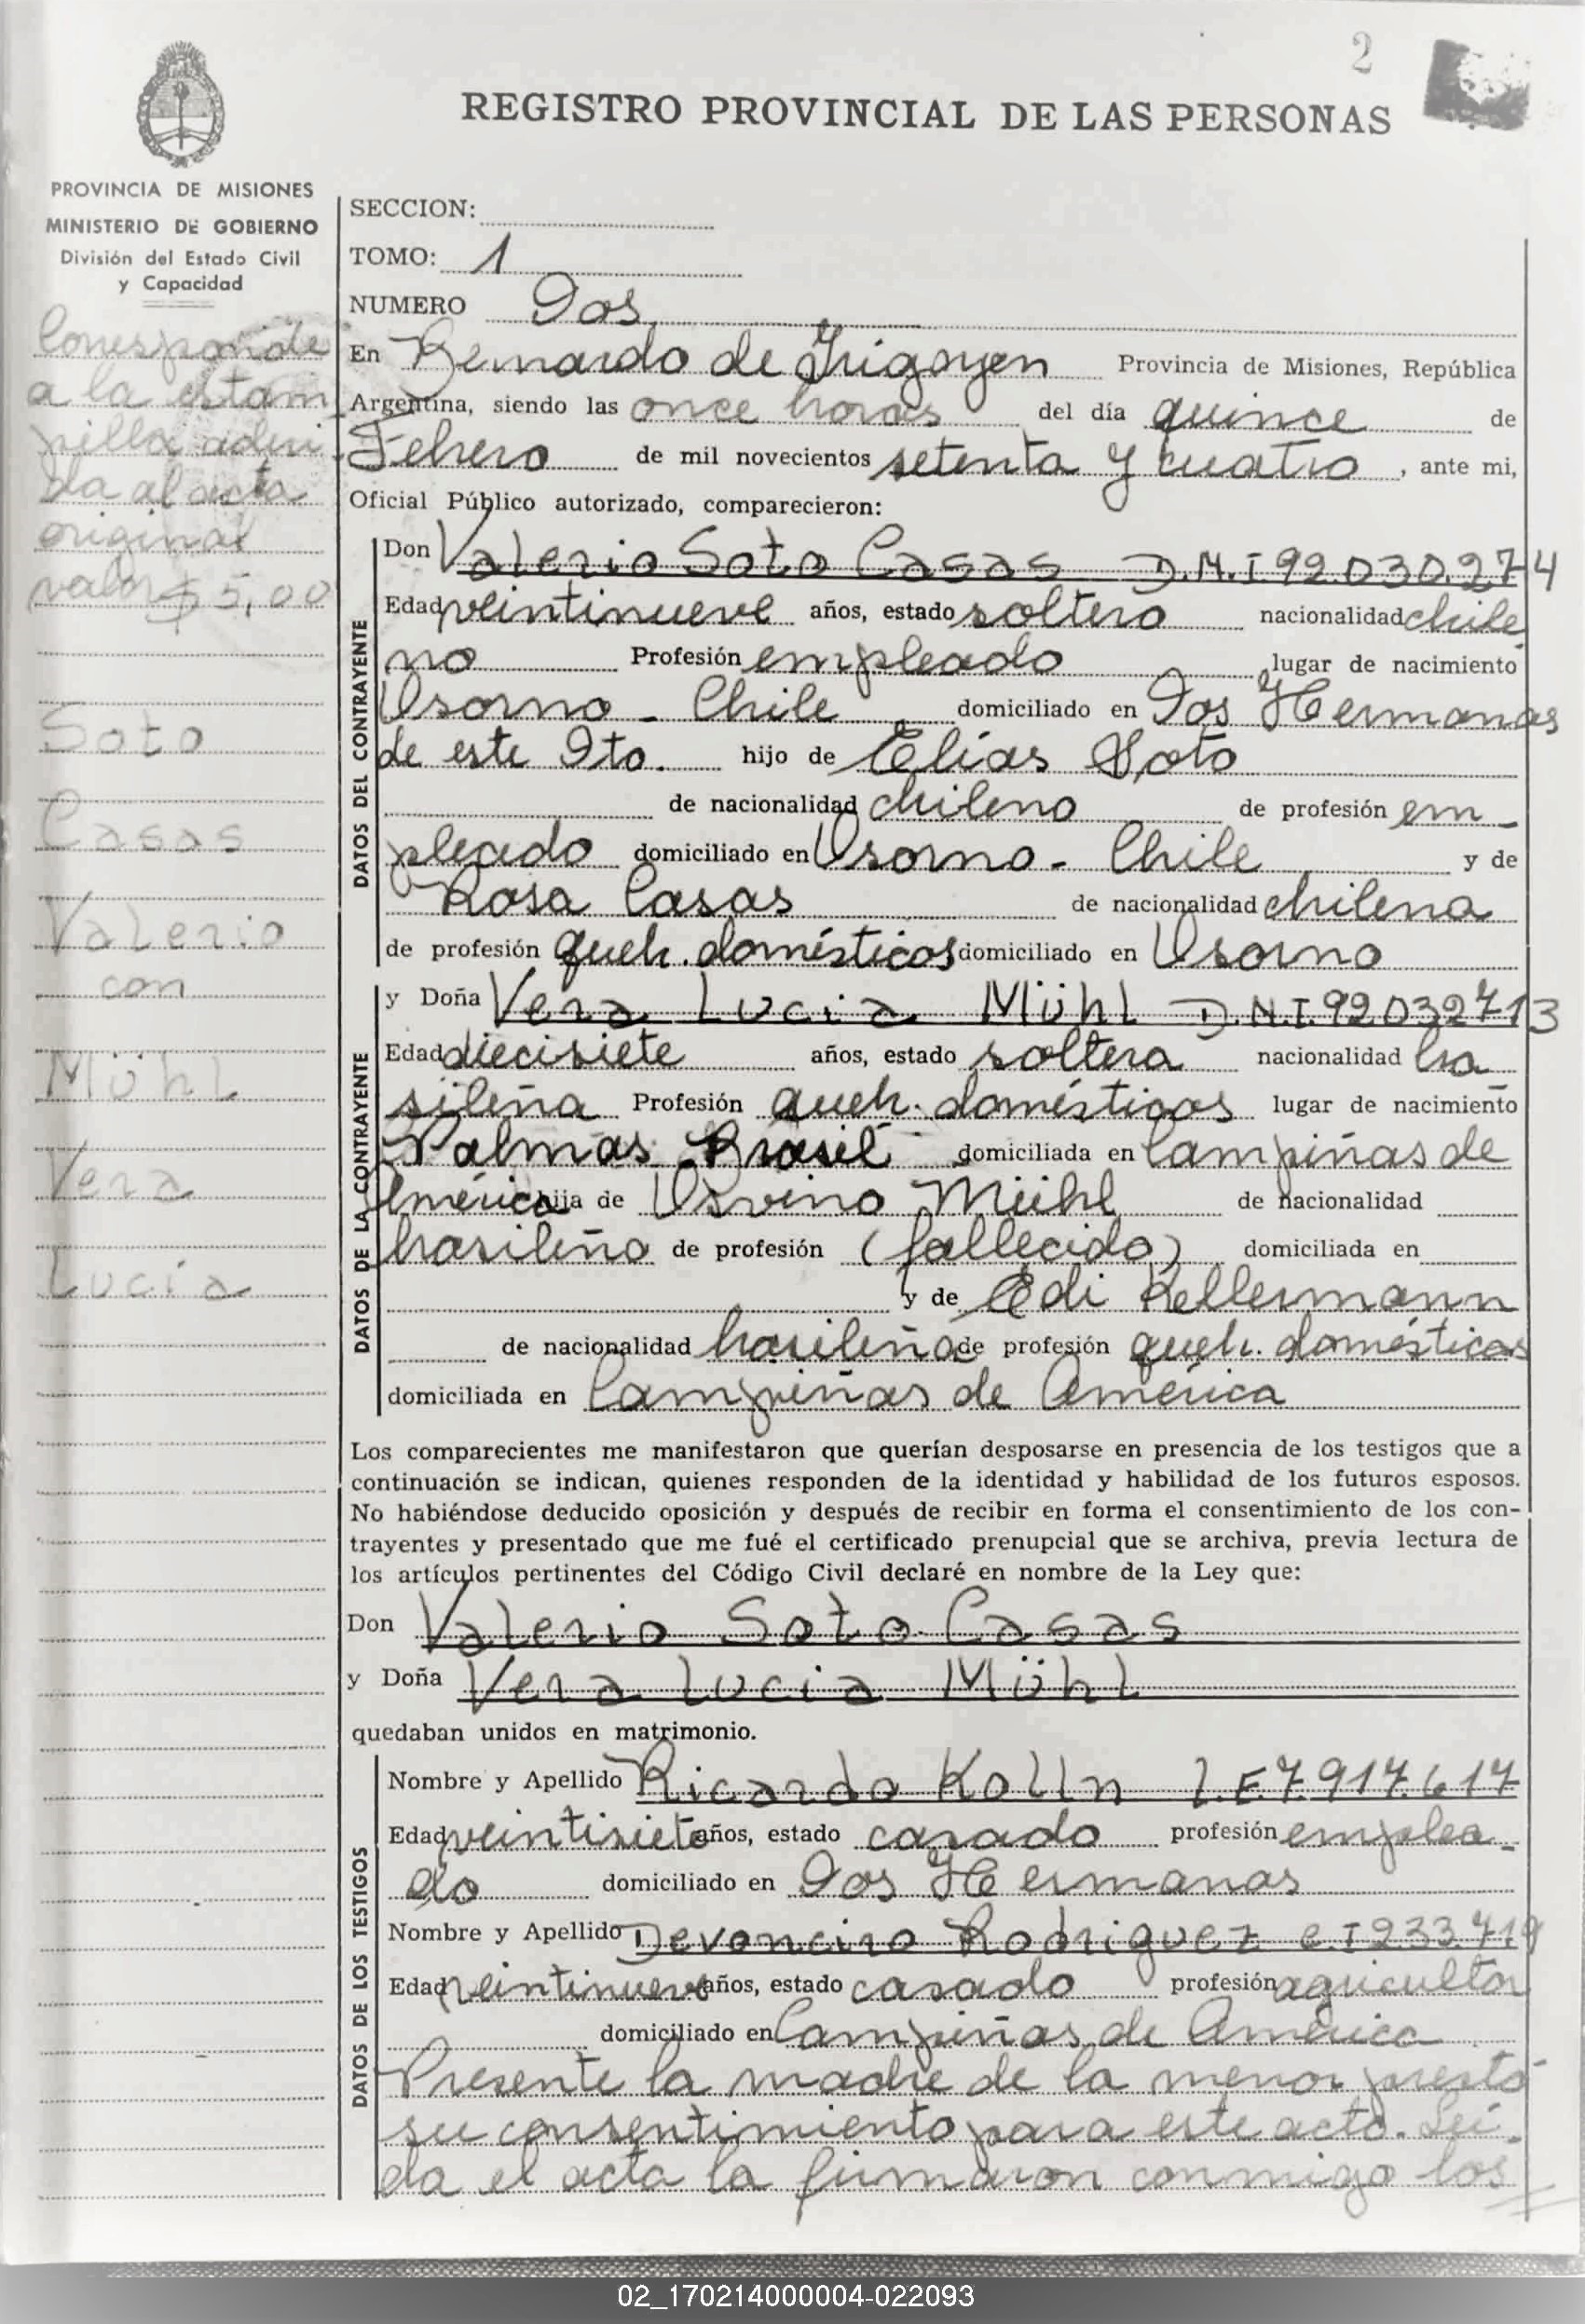 2
REGISTRO PROVINCIAL DE LAS PERSONAS
PROVINCIA DE MISIONES
MINISTERIO DE GOBIERNO
División del Estado Civil
y Capacidad
Corresponde
a la estam
pilla adhe
da al acta
original
valor $ 5,00
Soto
Casas
Valerio
con
Mühl
Vera
Lucía
SECCION:
TOMO: 1
NUMERO Dos
En Bernardo de Irigoyen Provincia de Misiones, República
Argentina, siendo las once horas del día quince de
Febrero de mil novecientos setenta y cuatro, ante mi,
Oficial Público autorizado, comparecieron:
DATOS DEL CONTRAYENTE
Don Valerio Soto Casas D.N.I 92.030.274
Edad veintinueve años, estado soltero nacionalidad chile
no Profesión empleado lugar de nacimiento
Osorno - Chile domiciliado en Dos Hermanas
de este Dto. hijo de Elías Soto
de nacionalidad chileno de profesión em-
pleado domiciliado en Osorno - Chile y de
Rosa Casas de nacionalidad chilena
de profesión queh. domésticos domiciliado en Osorno
DATOS DE LA CONTRAYENTE
y Doña Vera Lucia Mühl D.N.I. 92032713
Edad diecisiete años, estado soltera nacionalidad bra
sileña Profesión queh. domésticos lugar de nacimiento
Palmas Brasil domiciliada en Campiñas de
América hija de Osvino Mühl de nacionalidad
brasileño de profesión (fallecido) domiciliada en
y de Edi Kellermann
de nacionalidad brasileña de profesión queh. domésticos
domiciliada en Campiñas de América
Los comparecientes me manifestaron que querían desposarse en presencia de los testigos que a
continuación se indican, quienes responden de la identidad y habilidad de los futuros esposos.
No habiéndose deducido oposición y después de recibir en forma el consentimiento de los con-
trayentes y presentado que me fué el certificado prenupcial que se archiva, previa lectura de
los artículos pertinentes del Código Civil declaré en nombre de la Ley que:
Don Valerio Soto Casas
y Doña Vera Lucia Mühl
quedaban unidos en matrimonio.
DATOS DE LOS TESTIGOS
Nombre y Apellido Ricardo Kolln L.E 7.917.617
Edad veintisiete años, estado casado profesión emplea-
do domiciliado en Dos Hermanas
Nombre y Apellido Devonciro Rodriguez C.I 233.719
Edad veintinueve años, estado casado profesión agricultor
domiciliado en Campiñas de América
Presente la madre de la menor prestó
su consentimiento para este acto. Leí-
da el acta la firmaron conmigo los
02_170214000004-022093